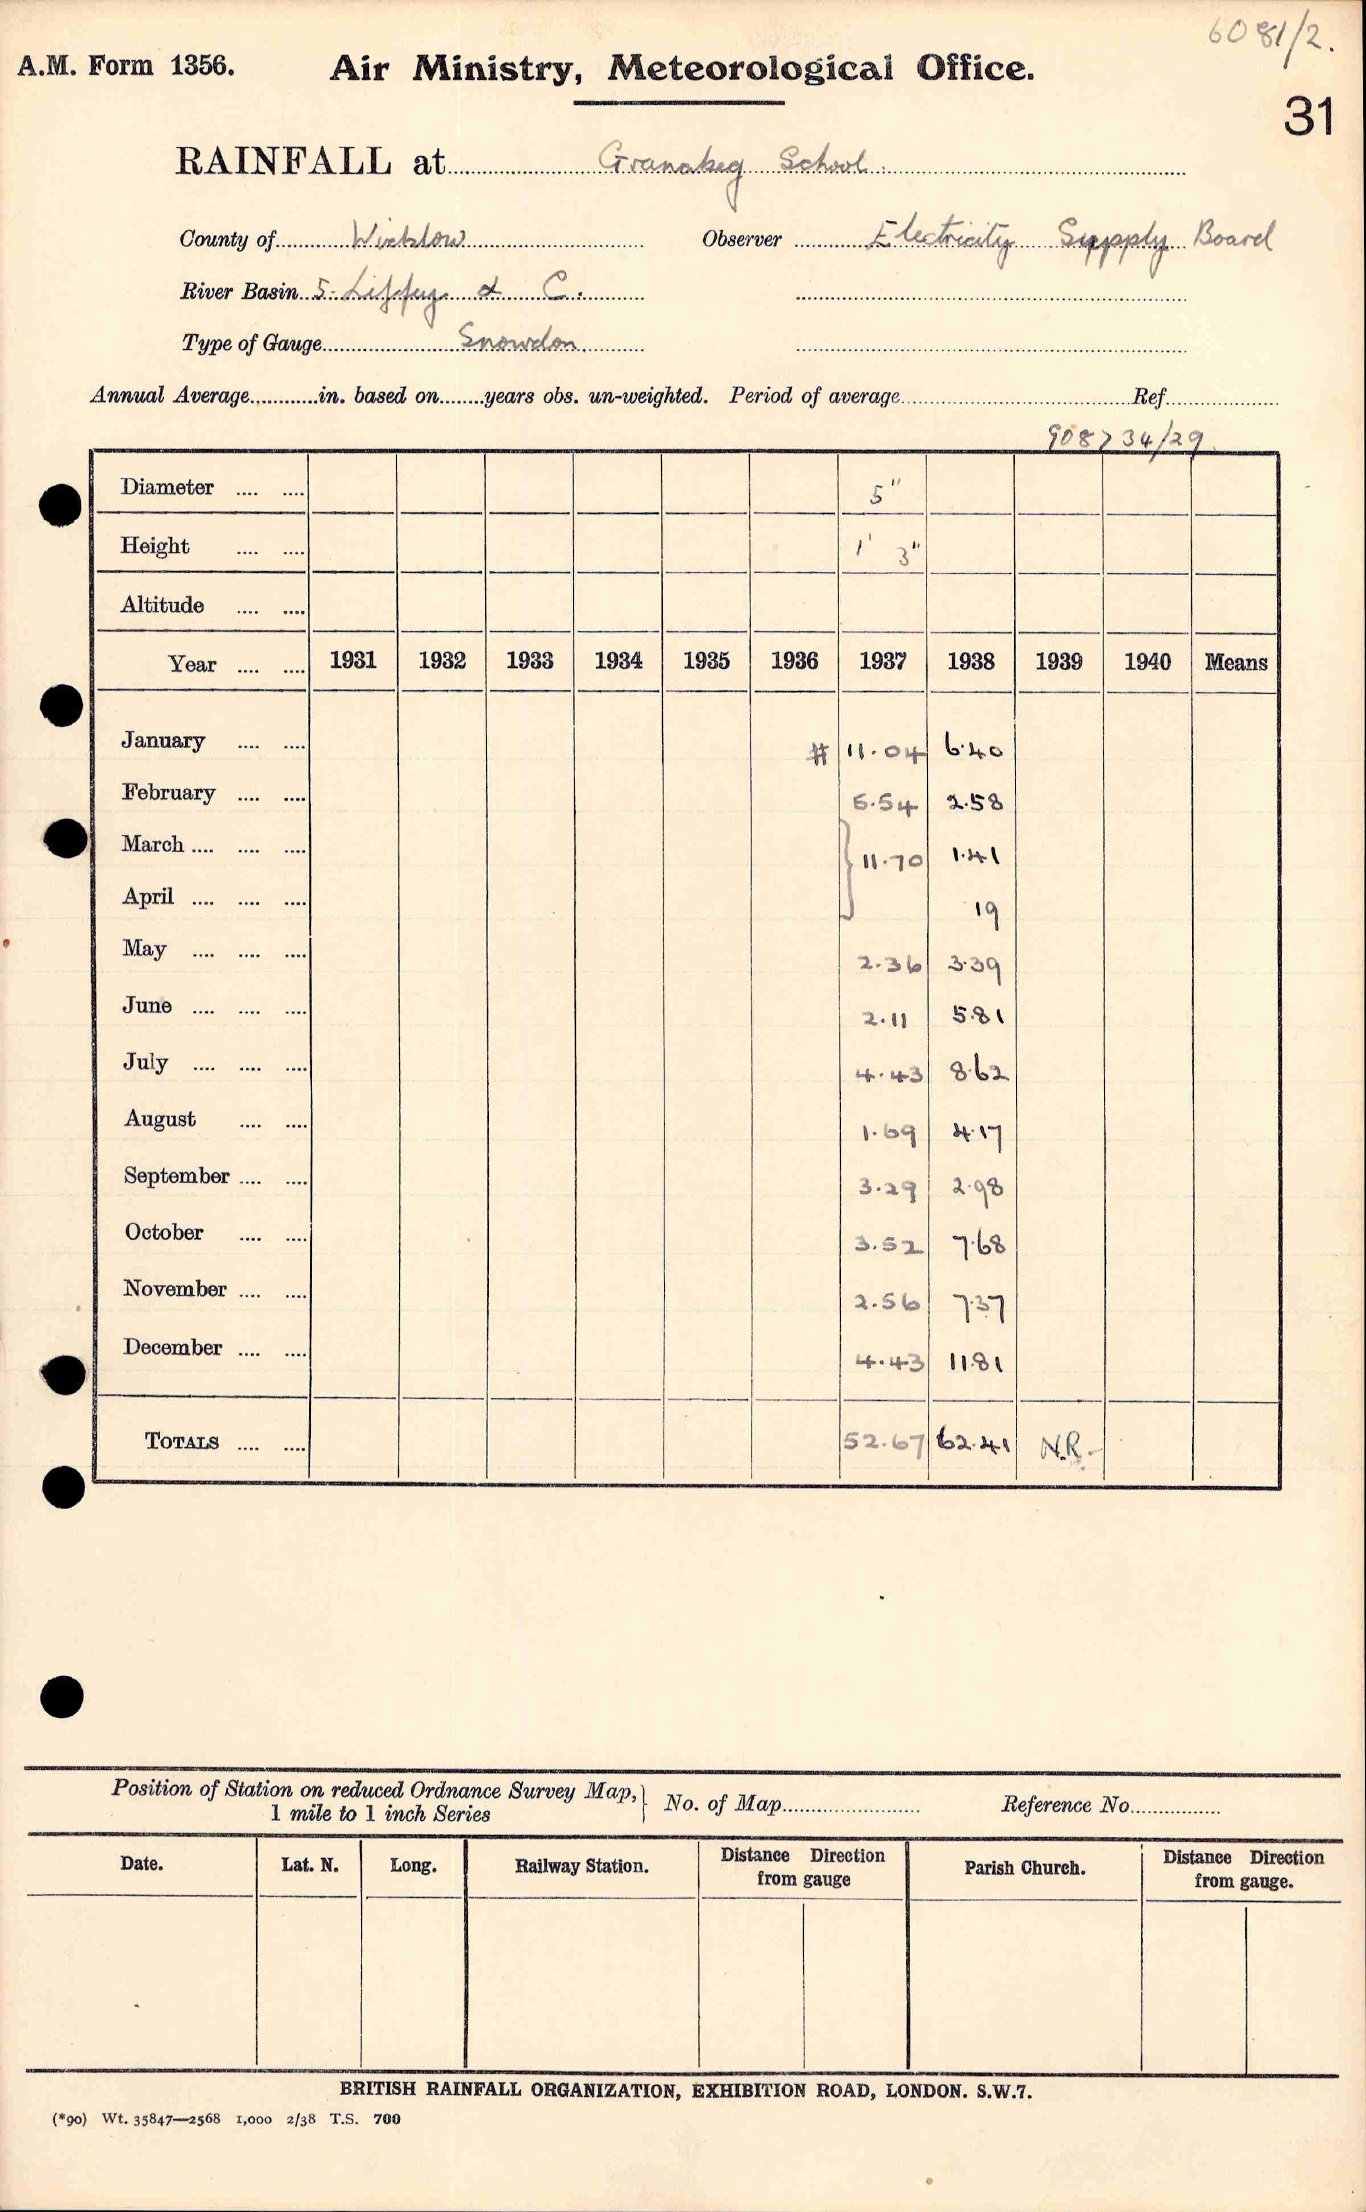 6081/2.
A.M. Form 1356. Air Ministry, Meteorological Office.
31
RAINFALL at Granabeg School.
County of Wicklow Observer Electricity Supply Board
River Basin 5. Liffey & C.
Type of Gauge Snowdon.
Annual Average in. based on years obs. un-weighted. Period of average Ref
908734/29.
Diameter .... .... 5"
Height .... .... 1' 3"
Altitude .... ....
Year .... .... 1931 1932 1933 1934 1935 1936 1937 1938 1939 1940 Means
January .... .... # 11.04 6.40
February .... .... 5.54 2.58
March .... .... .... } 11.70 1.41
April .... .... .... 19
May .... .... .... 2.36 3.39
June .... .... .... 2.11 5.81
July .... .... .... 4.43 8.62
August .... .... 1.69 4.17
September .... .... 3.29 2.98
October .... .... 3.52 7.68
November .... .... 2.56 7.37
December .... .... 4.43 11.81
TOTALS .... .... 52.67 62.41 N.R.-
Position of Station on reduced Ordnance Survey Map, } No. of Map Reference No
1 mile to 1 inch Series
Date. Lat. N. Long. Railway Station. Distance Direction Parish Church. Distance Direction
from gauge from gauge.
BRITISH RAINFALL ORGANIZATION, EXHIBITION ROAD, LONDON. S.W.7.
(*90) Wt. 35847—2568 1,000 2/38 T.S. 700